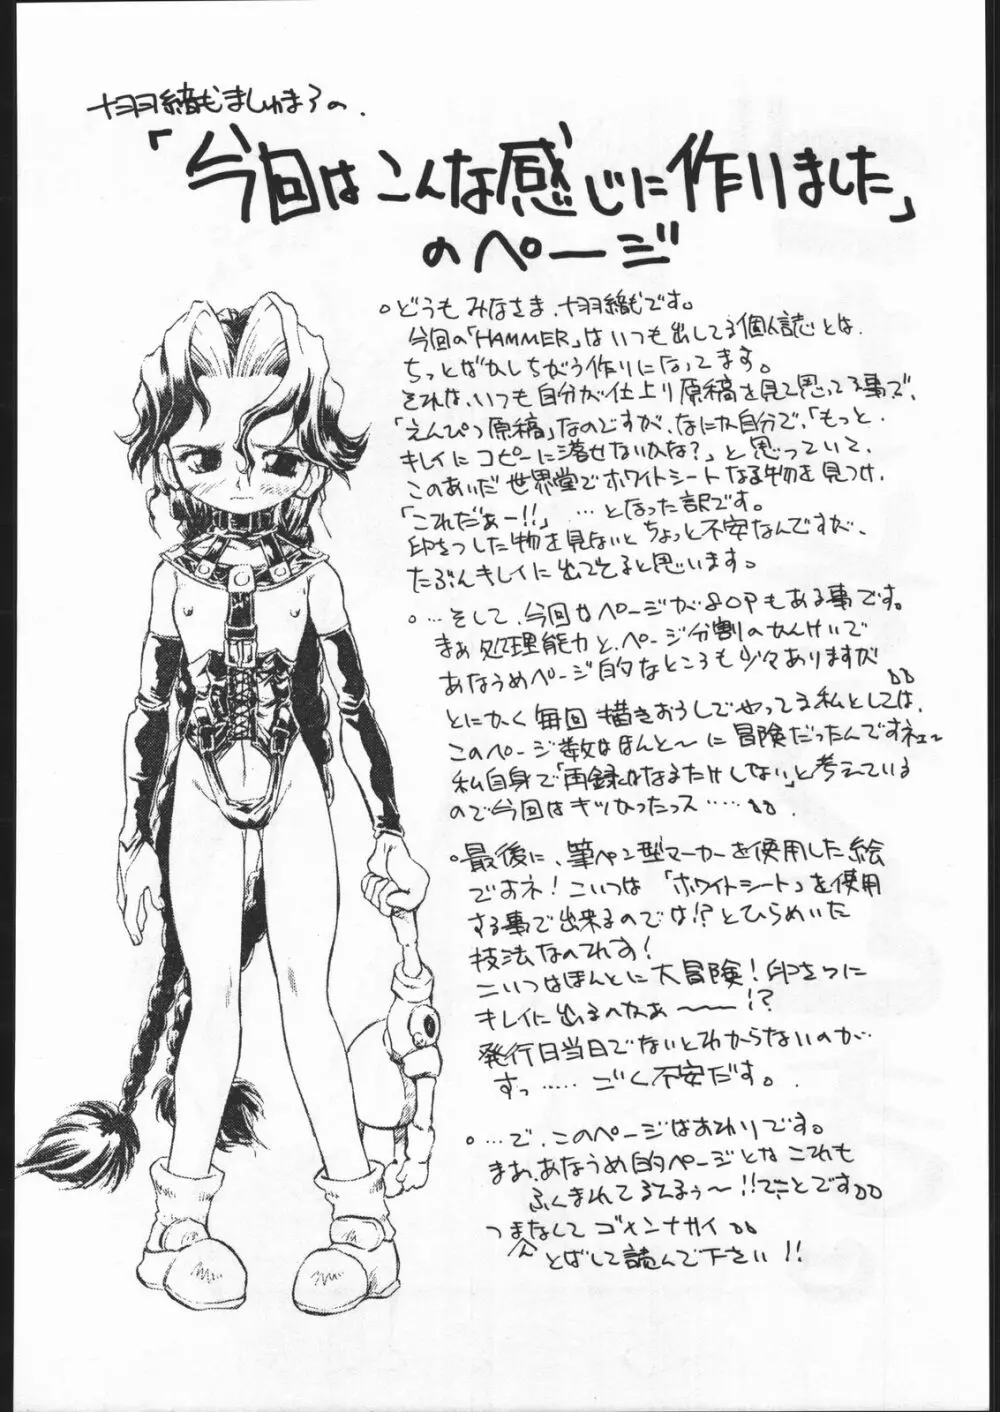 「今回はこんな感じに作りました」
のページ
。どうもみなさま、十羽織もです。
今回の「HAMMER」はいつも出してる個人誌とは、
ちっとばかしちがう作りになってます。
それは、いつも自分が仕上り原稿を見て思ってる事で、
「えんぴつ原稿」なのですが、なにか自分で、「もっと
キレイにコピーに落せないかな?」と思っていて、
このあいだ世界堂でホワイトシートなる物を見つけ、
「これだぁー!!」…となった訳です。
印をつした物を見ないとちょっと不安なんですが、
たぶんキレイに出でてると思います。
。…そして、今回はページが80Pもある事です。
まぁ処理能力と、ページ分割のかんけいで
あなうめページ的なところも少々ありますが
とにかく毎回描きおろしでやってる私としては、
このページ数はほんと〜に冒険だったんですネェ〜
私自身で「再録はなるたけしない」と考えている
ので今回はキツかったっス……。
。最後に、筆ペン型マーカーを使用した絵
ですネ!こいつは「ホワイトシート」を使用
する事で出来るのでは!?とひらめいた
技法なのです!
こいつはほんとに大冒険!印さつに
キレイに出るのかなぁ〜〜!?
発行日当日でないとわからないのが
すっ……ごく不安だす。
。…で、このページはおわりです。
まぁ、あなうめ的ページとかこれも
ふくまれてるんるぅ〜!!てことです
つまんなくてゴメンナサイ
とばして読んで下さい!!